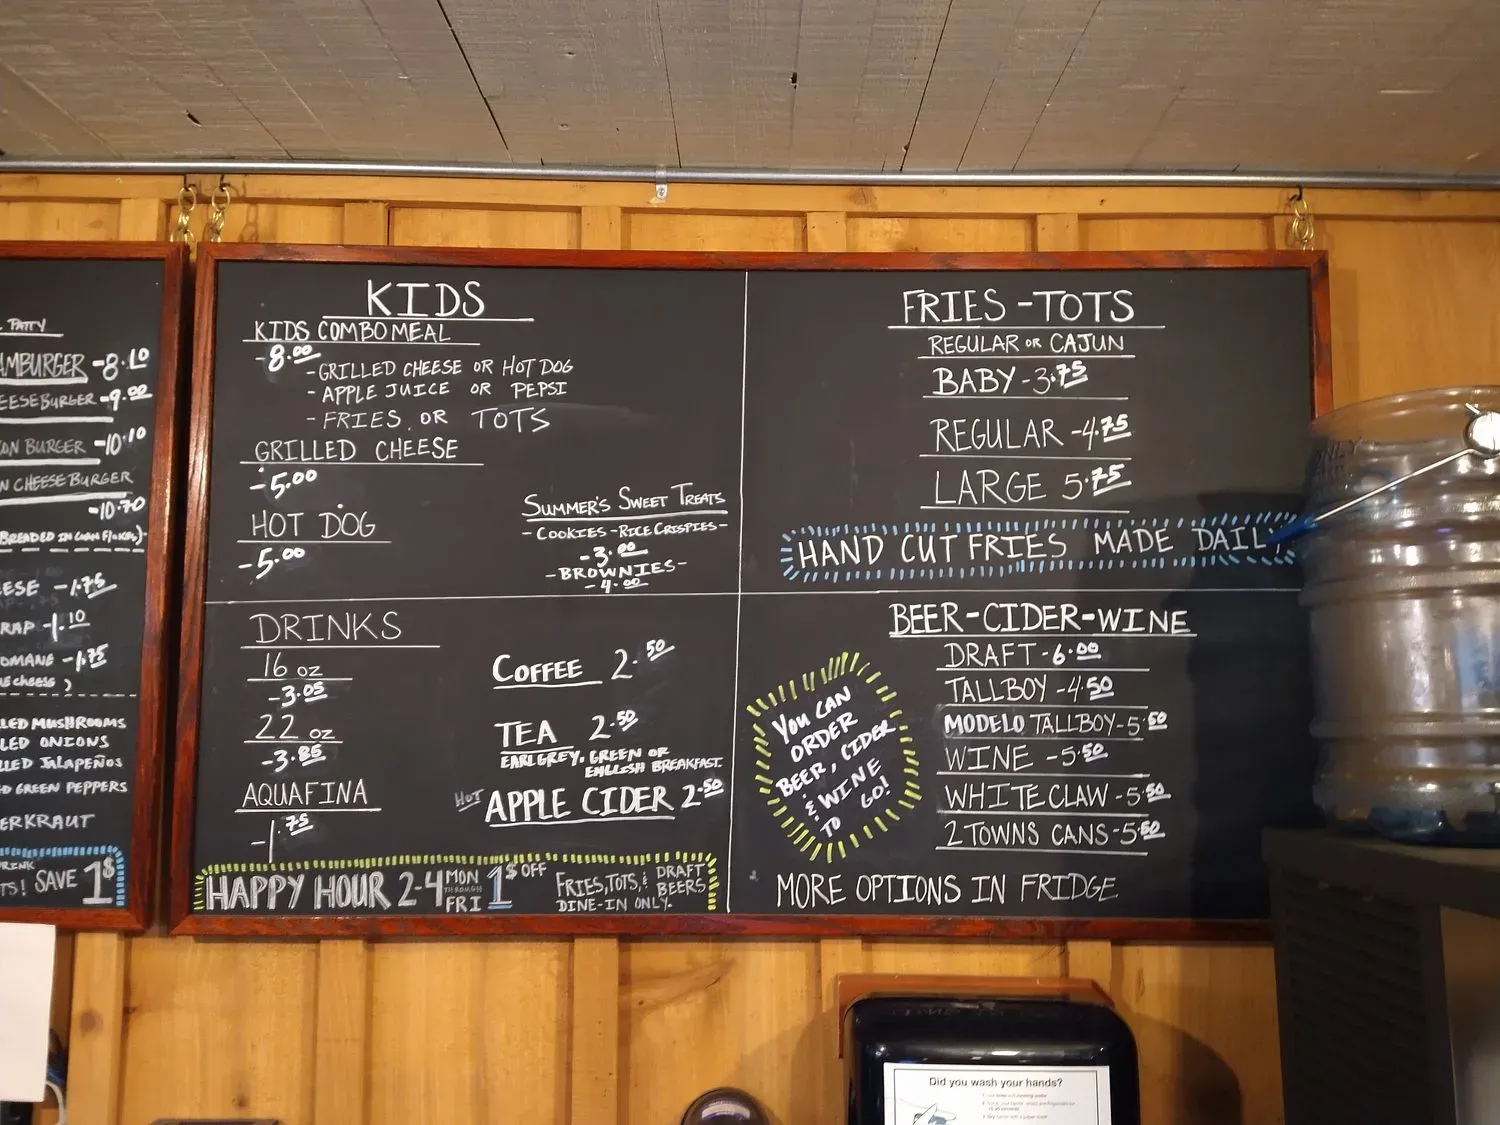 PATTY
MBURGER -8.10
EESEBURGER -9.00
ON BURGER -10.10
N CHEESEBURGER
-10.70
BREADED IN CORN FLAKES)-
ESE -1.75
RAP -1.10
OMANE -1.75
CHEESE )
LED MUSHROOMS
LED ONIONS
LED JALAPEÑOS
D GREEN PEPPERS
ERKRAUT
RINK
TS! SAVE 1$
KIDS
KIDS COMBO MEAL
-8.00
-GRILLED CHEESE OR HOT DOG
-APPLE JUICE OR PEPSI
-FRIES OR TOTS
GRILLED CHEESE
-5.00
HOT DOG
-5.00
SUMMER'S SWEET TREATS
-COOKIES-RICE CRISPIES-
-3.00
-BROWNIES-
-4.00
FRIES-TOTS
REGULAR OR CAJUN
BABY-3.75
REGULAR-4.75
LARGE 5.75
HAND CUT FRIES MADE DAIL
DRINKS
16 oz
-3.05
22 oz
-3.85
AQUAFINA
-1.75
COFFEE 2.50
TEA 2.50
EARL GREY, GREEN OR
ENGLISH BREAKFAST
HOT APPLE CIDER 2.50
HAPPY HOUR 2-4 MON THROUGH FRI 1$ OFF FRIES, TOTS, & DRAFT BEERS
DINE-IN ONLY.
BEER-CIDER-WINE
DRAFT-6.00
TALLBOY-4.50
MODELO TALLBOY-5.50
WINE -5.50
WHITE CLAW-5.50
2 TOWNS CANS-5.50
YOU CAN
ORDER
BEER, CIDER
& WINE
TO GO!
MORE OPTIONS IN FRIDGE
Did you wash your hands?